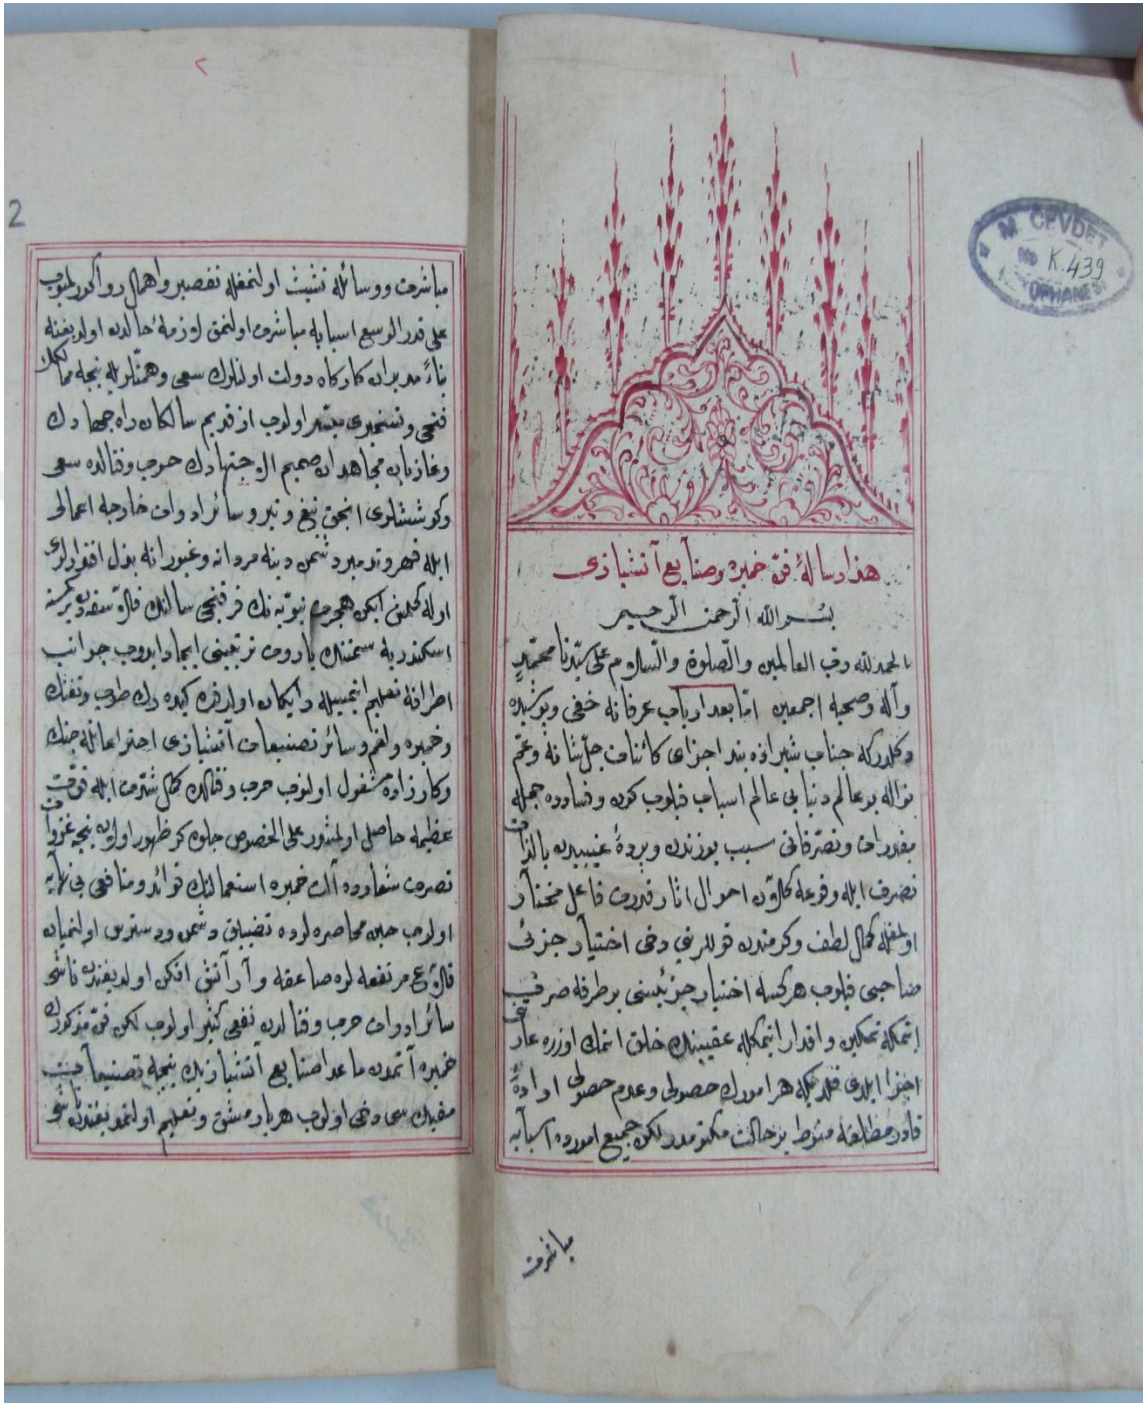 ١
M. CEVDET
No K.439
TOPHANE
هذا رسالۀ فن خمبره وصنايع آتشبازى
بسم الله الرحمن الرحيم
الحمد لله رب العالمين والصلوة والسلام على سيدنا محمد
وآله وصحبه اجمعين اما بعد ارباب عرفانه خفى وپوشيده
دكلدركه جناب شيرازه بند اجزاى كائنات جل شانه وعم
نواله بو عالم دنيايى عالم اسباب قيلوب كون وفسادده جمله
مقدرات وتصرفاتى سبب يوزندن وپردۀ غيبيدن بالذات
تصرف ايله وقوعه كلان احوال اثار قدرت فاعل مختار
اولمغله كمال لطف وكرمندن قوللرينى دخى اختيار جزئى
صاحبى قيلوب هركسه اختيار جزئيسنى بر طرفه صرف
ايتمكله تمكين واقدار ايتمكله عقيبنده خلق اتمك اوزره عادت
اجرا ايلدى هر امورك حصولى وعدم حصولى ارادۀ
قادر مطلقه منوط بر حالت لكن جميع امورده اسبابه
مباشرت
٢
2
مباشرت ووسائله تشبث اولنمغله تقصير واهمال روا كورلميوب
على قدر الوسع اسبابه مباشرت اولنمق لوازمۀ حالدن اولديغنه
بناءً مدبران كاركاه دولت اولنلرك سعى وهمتلريله نيجه ممالك
فتحى وتسخيرى ميسر اولوب از قديم سالكان راه جهادك
وغازيان مجاهدان صميم الاجتهادك حرب وقتالده سعى
وكوششلرى انجق تيغ وتير وسائر ادوات خارجه اعمالى
ايله قهر وتدمير دشمن دينه مردانه وغيورانه بذل اقتدارلرى
اوله كلمش ايكن هجرت نبويه نك
اسكندريه سمتنك باروت تركيبنى ايجاد ايدوب جوانب
اطرافه تعليم ايتمسيله كيده رك طوپ وتفنك
وخمبره ولغم وسائر تصنيعات آتشبازى اختراعاتله جنك
وكارزاره مشغول اولنوب حرب وقتالك كمال شدت ايله قوت
عظيمه حاصل اولمشدر على الخصوص جلوه كر ظهور اولان نيجه غزوات
نصرت شعارده آلت خمبره استعمالنك فوائد ومنافعى بى نهايه
اولوب حين محاصره لرده تضييق دشمن ودسترس اولنميان
قلاع مرتفعه لره صاعقه وار آتش افكن اولديغندن ناشى
سائر ادوات حرب وقتالدن نفعى كثير اولوب لكن فن مذكورك
خمبره آتمدن ماعدا صنايع آتشبازينك نيجه تصنيعات
دخى اولوب هربار مشق وتعليم اولنمديغندن ناشى